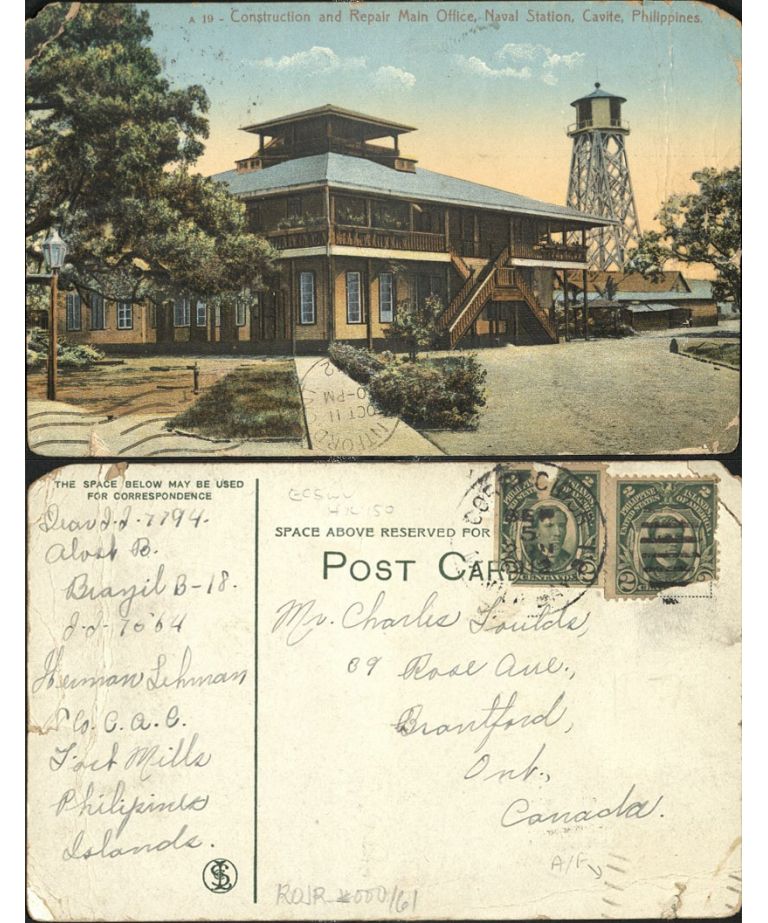 A 19 - Construction and Repair Main Office, Naval Station, Cavite, Philippines.
OCT 11
0-PM
NTFORD
THE SPACE BELOW MAY BE USED
FOR CORRESPONDENCE
SPACE ABOVE RESERVED FOR
POST CARD
PHILIPPINE ISLANDS
UNITED STATES OF AMERICA
2 CENTAVOS
PHILIPPINE ISLANDS
UNITED STATES OF AMERICA
2
Dear J.J-7794.
B.
Brazil B-18.
J-J-7564
Herman Lehman
Co. C. A. C.
Fort Mills
Philipines
Islands.
Mr. Charles Foulds,
69 Rose Ave.,
Brantford,
Ont.,
Canada.
A/F